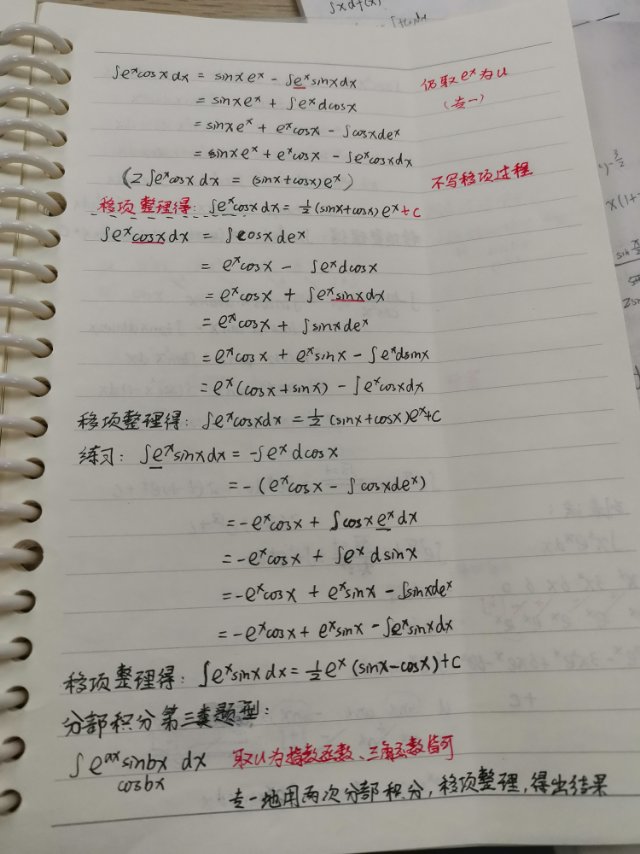 ∫e^x cosx dx = sinx e^x - ∫e^x sinx dx 仍取e^x为u
= sinx e^x + ∫e^x dcosx (专一)
= sinx e^x + e^x cosx - ∫cosx de^x
= sinx e^x + e^x cosx - ∫e^x cosx dx
(2∫e^x cosx dx = (sinx+cosx)e^x) 不写移项过程
移项整理得: ∫e^x cosx dx = 1/2 (sinx+cosx) e^x+C
∫e^x cosx dx = ∫cosx de^x
= e^x cosx - ∫e^x dcosx
= e^x cosx + ∫e^x sinx dx
= e^x cosx + ∫sinx de^x
= e^x cosx + e^x sinx - ∫e^x dsinx
= e^x (cosx+sinx) - ∫e^x cosx dx
移项整理得: ∫e^x cosx dx = 1/2 (sinx+cosx)e^x+C
练习: ∫e^x sinx dx = -∫e^x dcosx
= -(e^x cosx - ∫cosx de^x)
= -e^x cosx + ∫cosx e^x dx
= -e^x cosx + ∫e^x dsinx
= -e^x cosx + e^x sinx - ∫sinx de^x
= -e^x cosx + e^x sinx - ∫e^x sinx dx
移项整理得: ∫e^x sinx dx = 1/2 e^x (sinx-cosx)+C
分部积分第三类题型:
∫e^ax sinbx dx 取u为指数函数、三角函数皆可
cosbx
专一地用两次分部积分,移项整理,得出结果